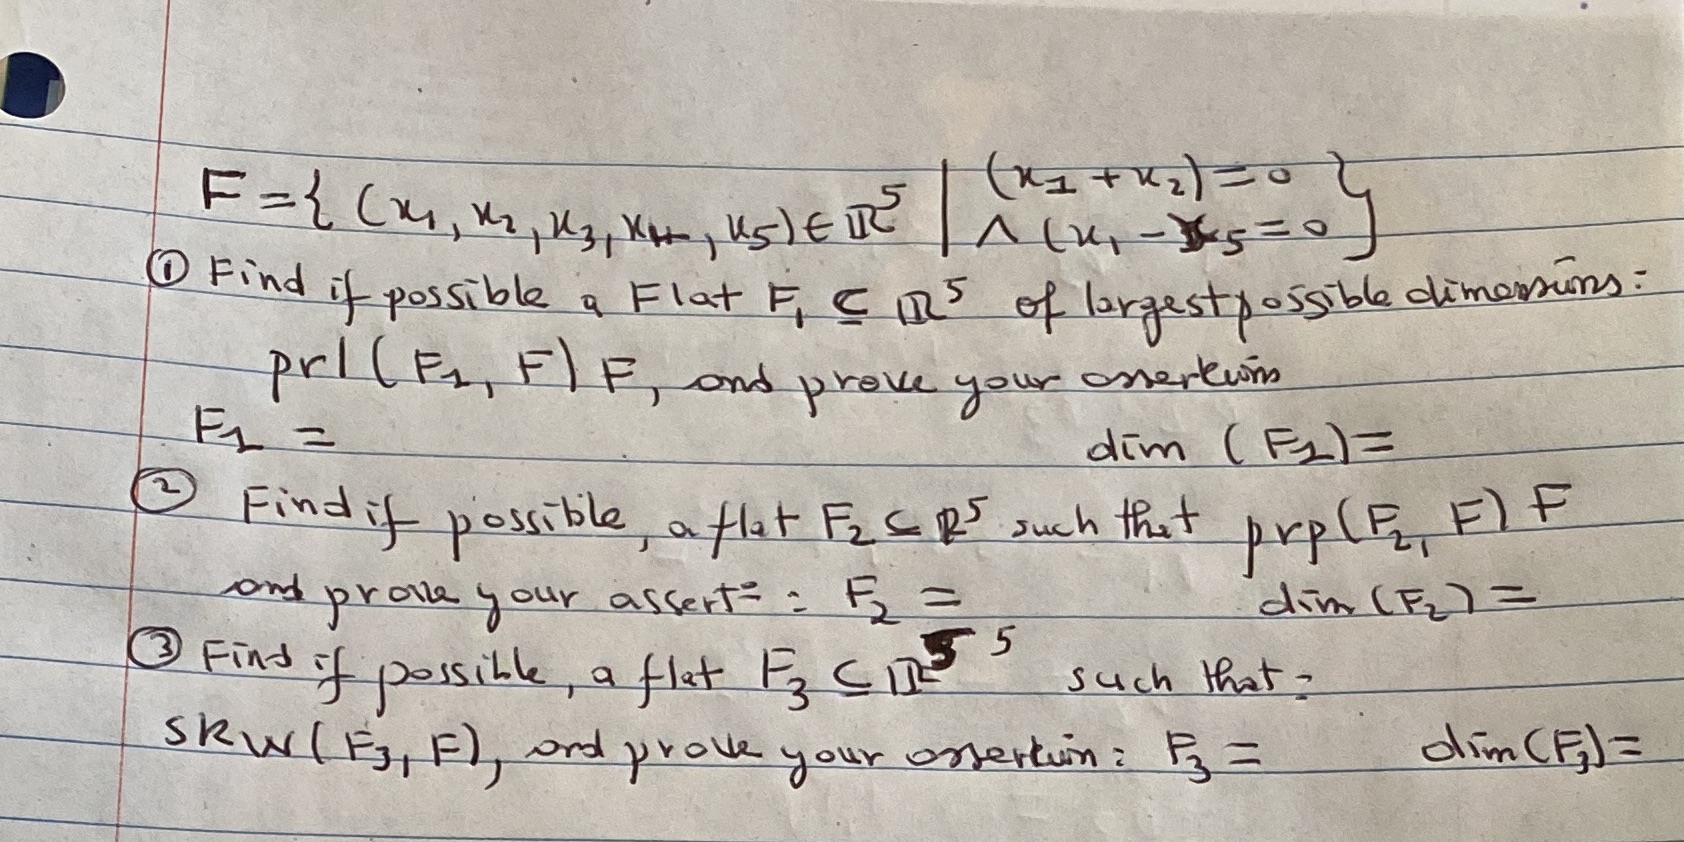 F = { (x₁, x₂, x₃, x₄, x₅) ∈ ℝ⁵ | (x₁ + x₂) = 0
∧ (x₁ - x₅ = 0 }
① Find if possible a Flat F₁ ⊆ ℝ⁵ of largest possible dimensions:
prl (F₁, F) F, and prove your assertion
F₁ = dim (F₁) =
② Find if possible, a flat F₂ ⊆ ℝ⁵ such that prp(F₂, F) F
and prove your assert= : F₂ = dim (F₂) =
③ Find if possible, a flat F₃ ⊆ ℝ⁵ such that:
skw(F₃, F), and prove your assertion: F₃ = dim(F₃) =